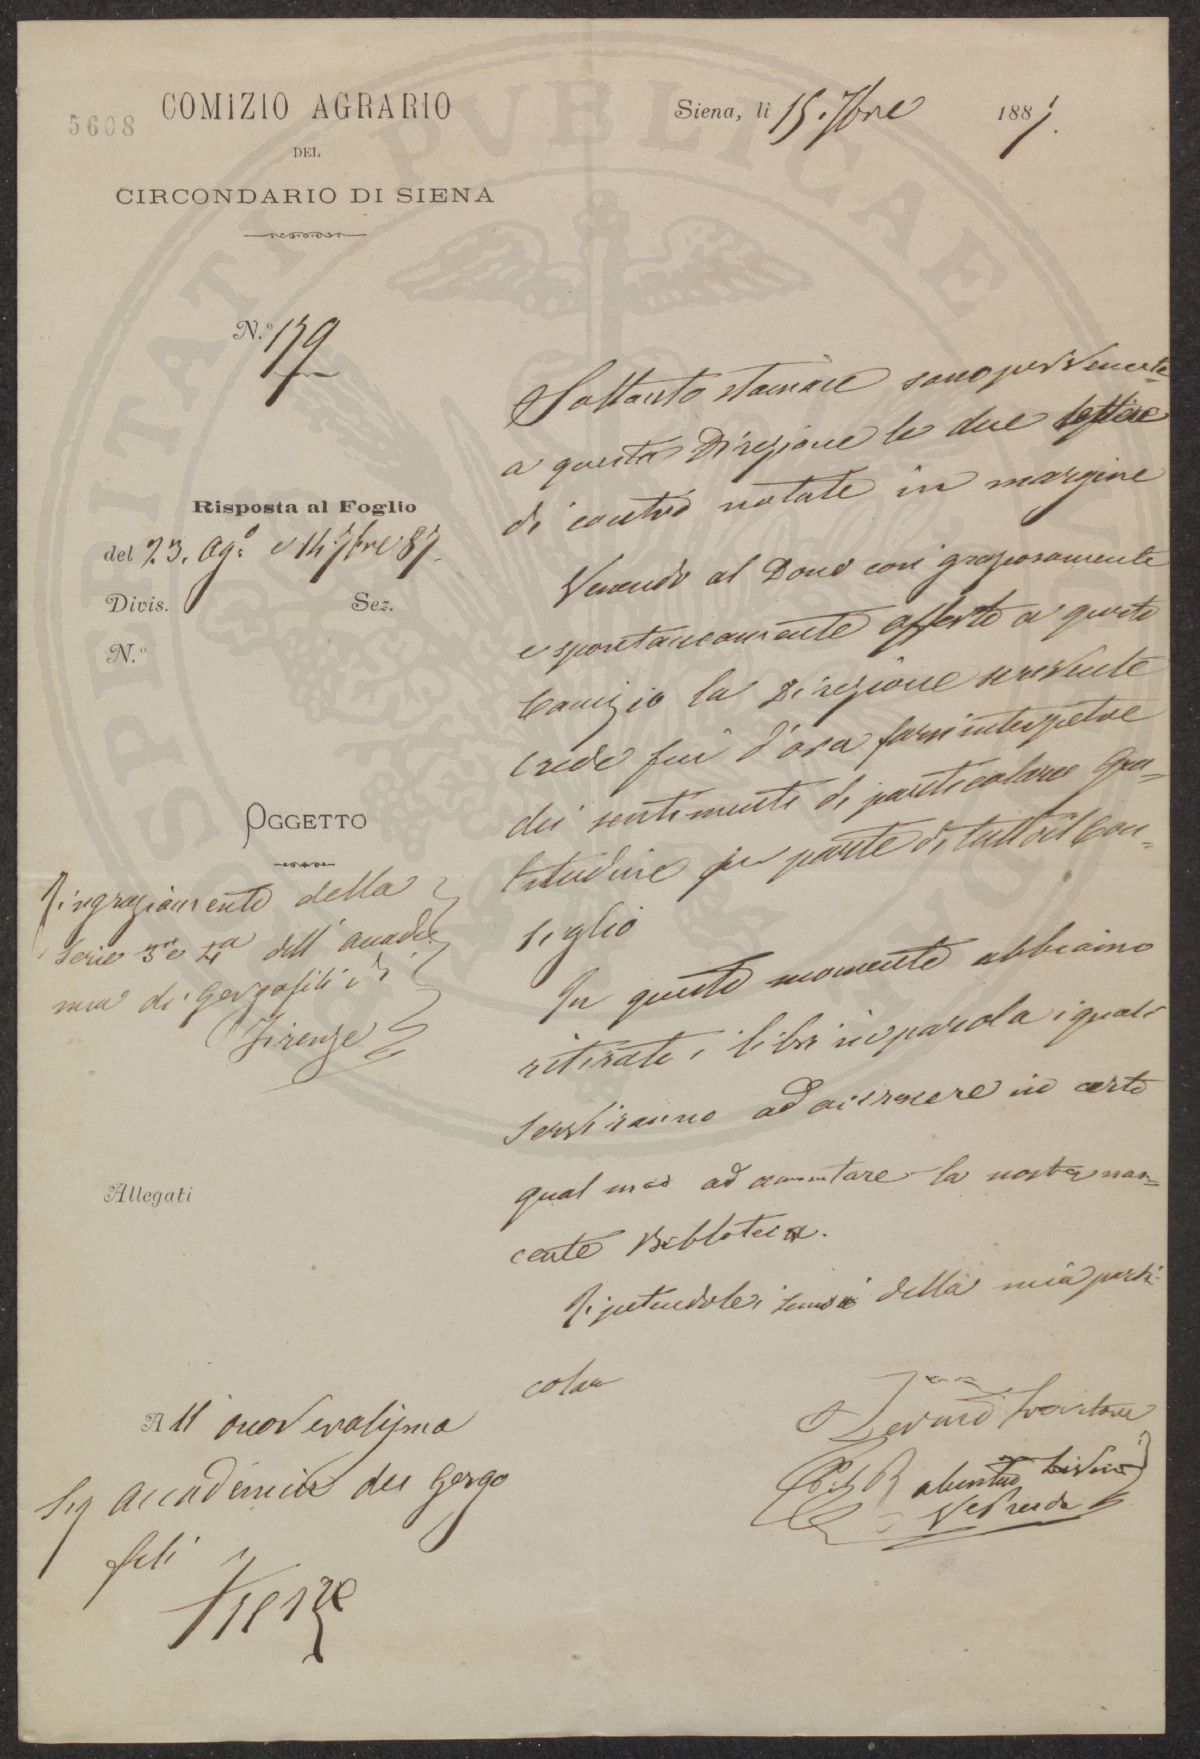 5608
COMIZIO AGRARIO
DEL
CIRCONDARIO DI SIENA
Siena, li 15. 7bre 1887.
N.º 139
Risposta al Foglio
del 23. Agº e 14 7bre 87.
Divis. Sez.
N.º
OGGETTO
Ringraziamento della
Serie 3ª e 4ª dell' Accade
mia dei Gergofili di
Firenze
Allegati
All' onoverolissma
Sig Accademia dei Gergo
fili
Firenze
Soltanto stamane sono pervenute
a questa Direzione le due lettere
di contro notate in margine
Venendo al Dono così graziosamente
e spontaneamente offerto a questo
Comizio la Direzione scrivente
crede fin d'ora farsi interpetre
dei sentimenti di particolare Gra=
titudine per parte di tutto il Con=
siglio
In questo momento abbiamo
ritirato i libri in parola i quali
serviranno ad accrescere in certo
qual modo ad aumentare la nostra nas=
cente Biblioteca.
Ripetendole i sensi della mia parti-
colar
PUBLICAE